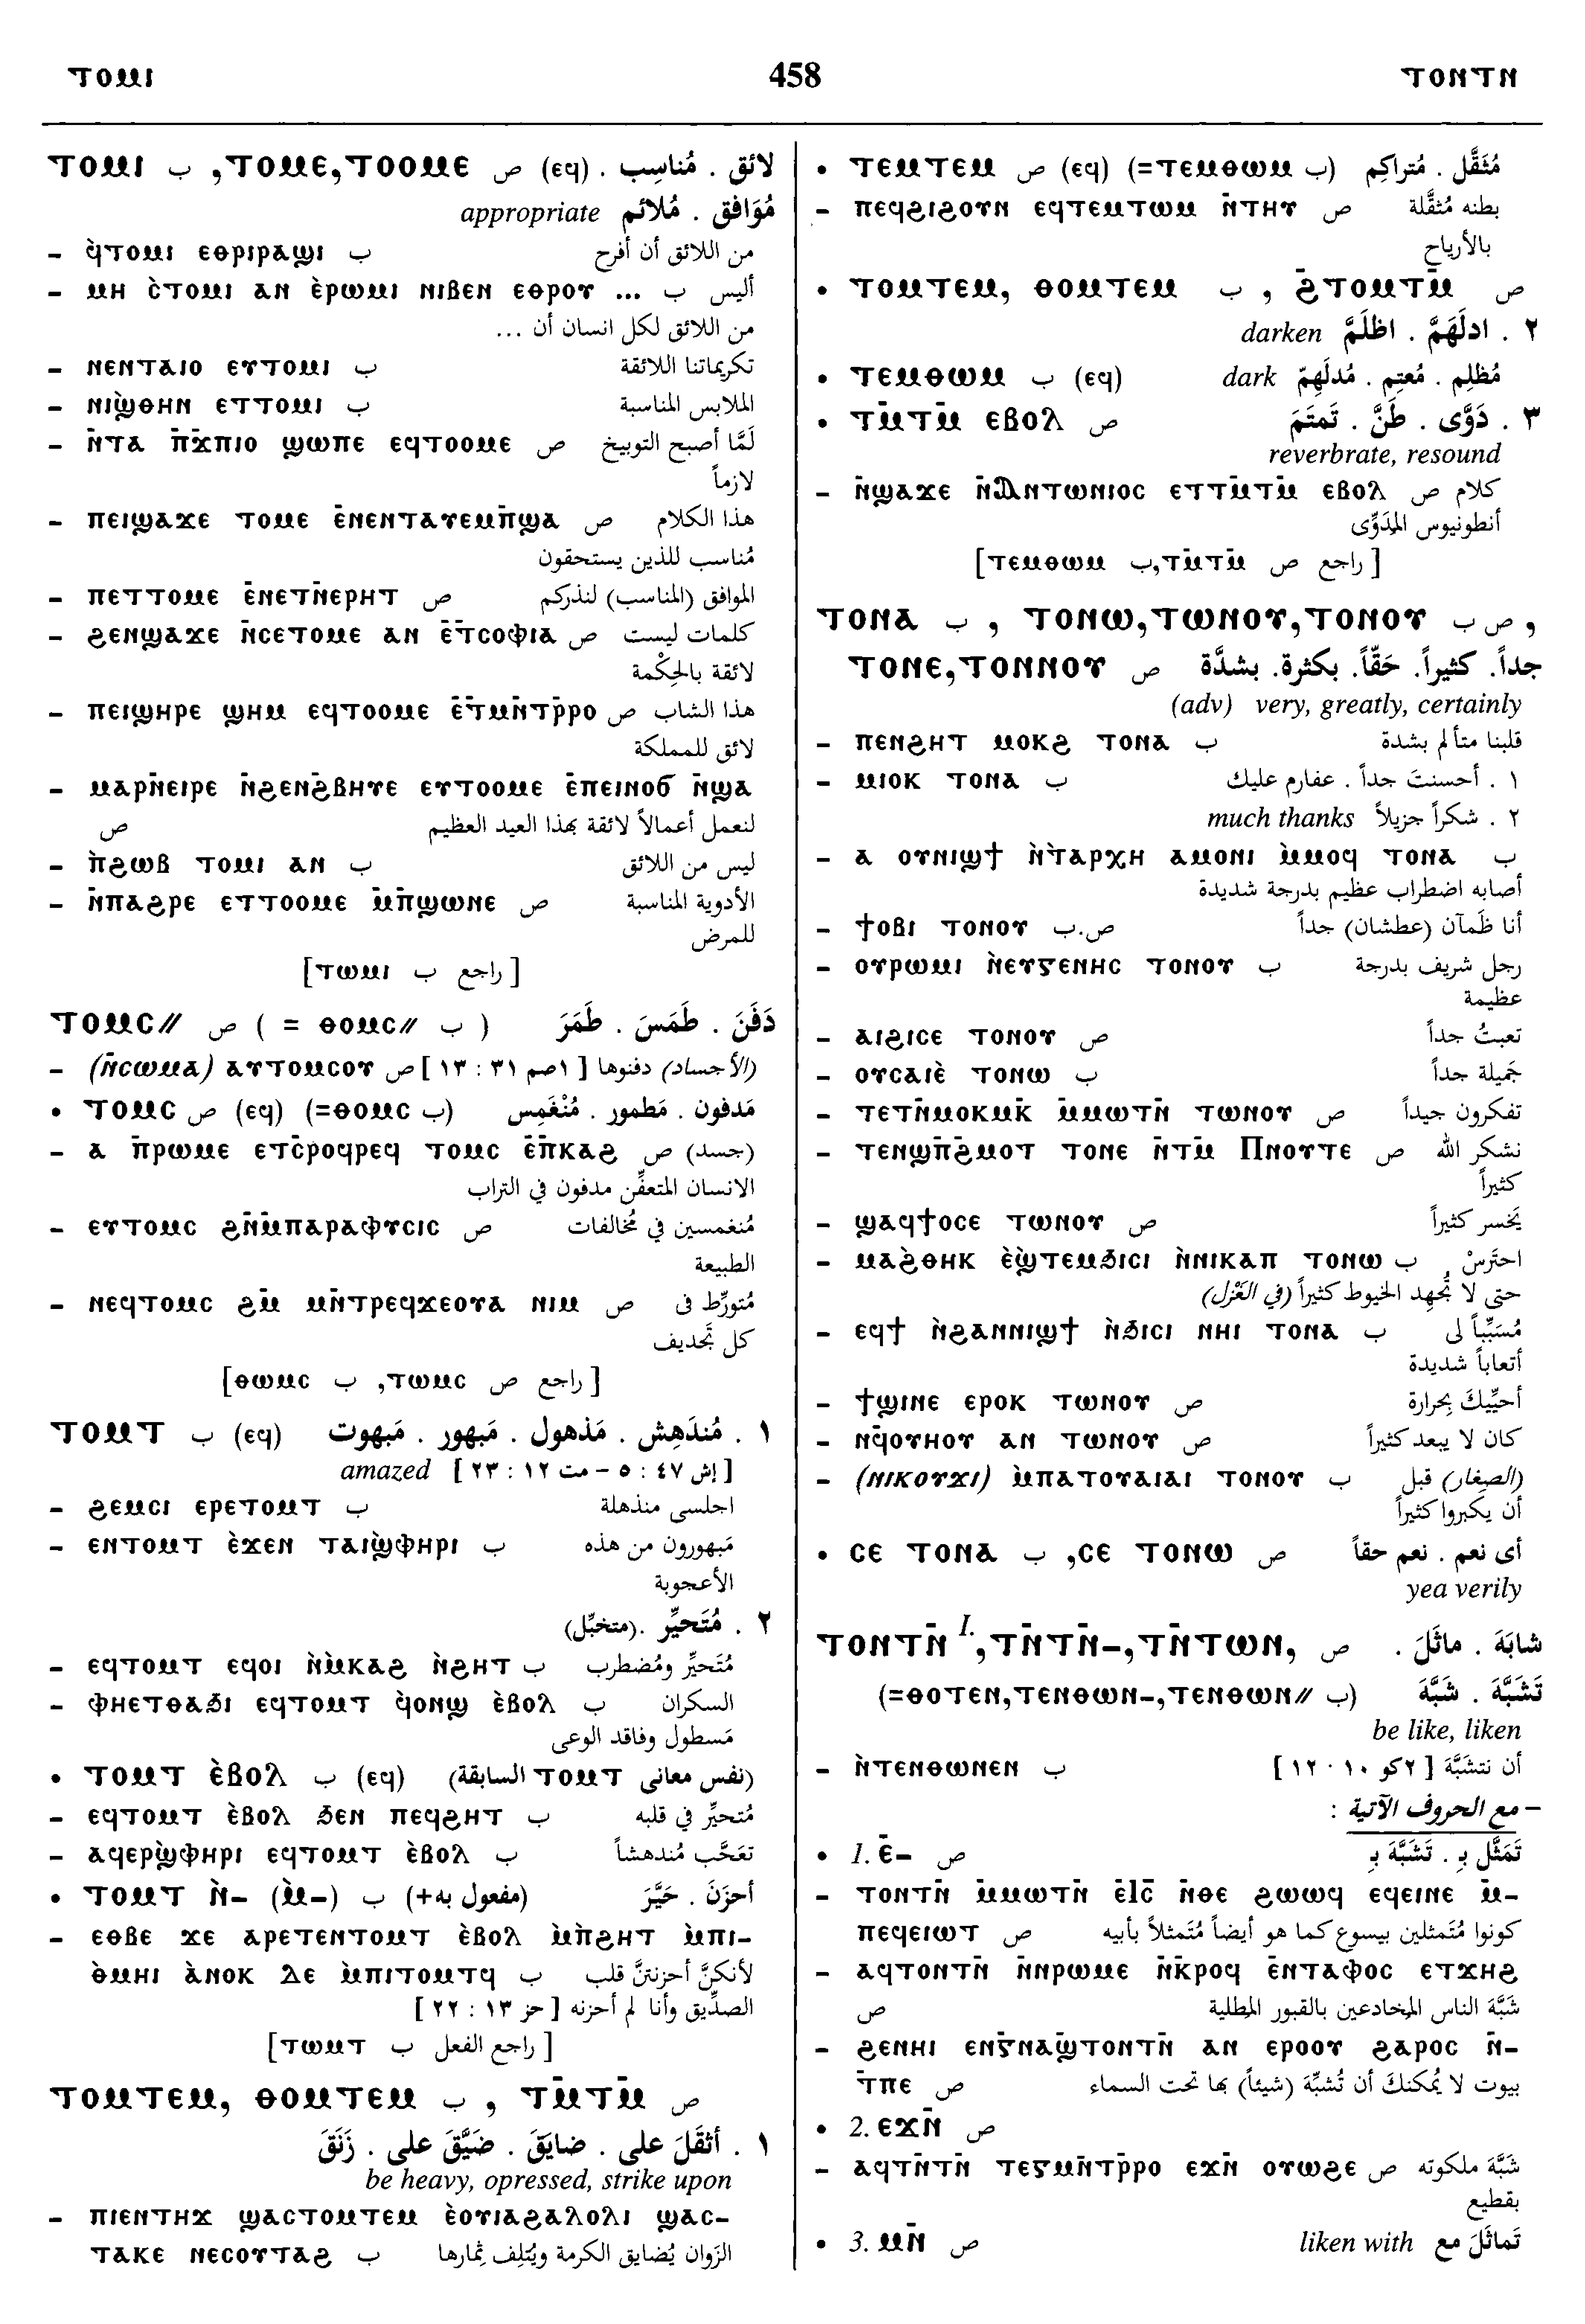 ⲧⲟⲙⲓ 458 ⲧⲟⲛⲧⲛ
ⲧⲟⲙⲓ ب ,ⲧⲟⲙⲉ,ⲧⲟⲟⲙⲉ ص (ⲉϥ) لائق . مُناسِب .
مُوَافق . مُلائم appropriate
– ϥ̀ⲧⲟⲙⲓ ⲉⲑⲣⲓⲣⲁϣⲓ ب من اللائق أن أفرح
– ⲙⲏ ⲥ̀ⲧⲟⲙⲓ ⲁⲛ ⲉ̀ⲣⲱⲙⲓ ⲛⲓⲃⲉⲛ ⲉⲑⲣⲟⲩ ... ب أليس
من اللائق لكل انسان أن ...
– ⲛⲉⲛⲧⲁⲓⲟ ⲉⲩⲧⲟⲙⲓ ب تكريماتنا اللائقة
– ⲛⲓϣ̀ⲑⲏⲛ ⲉⲧⲧⲟⲙⲓ ب الملابس المناسبة
– ⲛ̄ⲧⲁ ⲡ̄ϫ̄ⲡⲓⲟ ϣⲱⲡⲉ ⲉϥⲧⲟⲟⲙⲉ ص لَمَّا أصبح التوبيخ
لازماً
– ⲡⲉⲓϣⲁϫⲉ ⲧⲟⲙⲉ ⲉ̄ⲛⲉⲛⲧⲁⲩⲉⲙⲡ̄ϣⲁ ص هذا الكلام
مُناسب للذين يستحقون
– ⲡⲉⲧⲧⲟⲙⲉ ⲉ̄ⲛⲉⲧⲛ̄ⲉⲣⲏⲧ ص الموافق (المناسب) لنذركم
– ϩⲉⲛϣⲁϫⲉ ⲛ̄ⲥⲉⲧⲟⲙⲉ ⲁⲛ ⲉ̄ⲧ̄ⲥⲟⲫⲓⲁ ص كلمات ليست
لائقة بالحِكْمة
– ⲡⲉⲓϣⲏⲣⲉ ϣⲏⲙ ⲉϥⲧⲟⲟⲙⲉ ⲉ̄ⲧ̄ⲙⲛ̄ⲧⲣ̄ⲣⲟ ص هذا الشاب
لائق للمملكة
– ⲙⲁⲣⲛ̄ⲉⲓⲣⲉ ⲛ̄ϩⲉⲛϩ̄ⲃⲏⲩⲉ ⲉⲩⲧⲟⲟⲙⲉ ⲉ̄ⲡⲉⲓⲛⲟϭ ⲛ̄ϣⲁ
لنعمل أعمالاً لائقة بهذا العيد العظيم ص
– ⲡ̀ϩⲱⲃ ⲧⲟⲙⲓ ⲁⲛ ب ليس من اللائق
– ⲛ̄ⲡⲁϩⲣⲉ ⲉⲧⲧⲟⲟⲙⲉ ⲙ̄ⲡ̄ϣⲱⲛⲉ ص الأدوية المناسبة
للمرض
[ راجع ب ⲧⲱⲙⲓ]
ⲧⲟⲙⲥ// ص ( = ⲑⲟⲙⲥ// ب ) دَفَنَ . طَمَسَ . طَمَرَ
– (ⲛ̄ⲥⲱⲙⲁ) ⲁⲩⲧⲟⲙⲥⲟⲩ ص [ ١صم ٣١ : ١٣ ] (الأجساد) دفنوها
• ⲧⲟⲙⲥ ص (ⲉϥ) (=ⲑⲟⲙⲥ ب) مَدفون . مَطمور . مُنْغَمِس
– ⲁ ⲡ̄ⲣⲱⲙⲉ ⲉⲧⲥ̄ⲣⲟϥⲣⲉϥ ⲧⲟⲙⲥ ⲉ̄ⲡ̄ⲕⲁϩ ص (جسد)
الانسان المتعفِّن مدفون في التراب
– ⲉⲩⲧⲟⲙⲥ ϩⲛ̄ⲙ̄ⲡⲁⲣⲁⲫⲩⲥⲓⲥ ص مُنغمسين في مُخالفات
الطبيعة
– ⲛⲉϥⲧⲟⲙⲥ ϩⲙ̄ ⲙⲛ̄ⲧⲣⲉϥϫⲉⲟⲩⲁ ⲛⲓⲙ ص مُتورِّط فى
كل تَجديف
[ راجع ص ⲧⲱⲙⲥ, ب ⲑⲱⲙⲥ]
ⲧⲟⲙⲧ ب (ⲉϥ) ١ . مُندَهِش . مَذهول . مَبهور . مَبهوت
[إش ٤٧ : ٥ – مت ١٢ : ٢٣ ] amazed
– ϩⲉⲙⲥⲓ ⲉⲣⲉⲧⲟⲙⲧ ب اجلسى منذهلة
– ⲉⲛⲧⲟⲙⲧ ⲉ̀ϫⲉⲛ ⲧⲁⲓϣ̀ⲫⲏⲣⲓ ب مَبهورون من هذه
الأعجوبة
٢ . مُتَحيِّر .(متخبِّل)
– ⲉϥⲧⲟⲙⲧ ⲉϥⲟⲓ ⲛ̀ⲙ̀ⲕⲁϩ ⲛ̀ϩⲏⲧ ب مُتَحيِّر ومُضطرب
– ⲫⲏⲉⲧⲑⲁϧⲓ ⲉϥⲧⲟⲙⲧ ϥ̀ⲟⲛϣ ⲉ̀ⲃⲟⲗ ب السكران
مَسطول وفاقد الوعى
• ⲧⲟⲙⲧ ⲉ̀ⲃⲟⲗ ب (ⲉϥ) (نفس معانى ⲧⲟⲙⲧ السابقة)
– ⲉϥⲧⲟⲙⲧ ⲉ̀ⲃⲟⲗ ϧⲉⲛ ⲡⲉϥϩⲏⲧ ب مُتحيِّر في قلبه
– ⲁϥⲉⲣϣ̀ⲫⲏⲣⲓ ⲉϥⲧⲟⲙⲧ ⲉ̀ⲃⲟⲗ ب تعَجَّب مُندهشاً
• ⲧⲟⲙⲧ ⲛ̀– (ⲙ̀–) ب (مفعول به+) أحزَنَ . حَيَّرَ
– ⲉⲑⲃⲉ ϫⲉ ⲁⲣⲉⲧⲉⲛⲧⲟⲙⲧ ⲉ̀ⲃⲟⲗ ⲙ̀ⲡ̀ϩⲏⲧ ⲙ̀ⲡⲓ–
ⲑ̀ⲙⲏⲓ ⲁ̀ⲛⲟⲕ ⲇⲉ ⲙ̀ⲡⲓⲧⲟⲙⲧϥ ب لأنكنَّ أحزنتنَّ قلب
الصدِّيق وأنا لم أحزنه [ حز ١٣ : ٢٢ ]
[ راجع الفعل ب ⲧⲱⲙⲧ]
ⲧⲟⲙⲧⲉⲙ, ⲑⲟⲙⲧⲉⲙ ب , ⲧⲙ̄ⲧⲙ̄ ص
١ . أثقَلَ على . ضايَقَ . ضيَّقَ على . زَنَقَ
be heavy, opressed, strike upon
– ⲡⲓⲉⲛⲧⲏϫ ϣⲁⲥⲧⲟⲙⲧⲉⲙ ⲉ̀ⲟⲩⲓⲁϩⲁⲗⲟⲗⲓ ϣⲁⲥ–
ⲧⲁⲕⲉ ⲛⲉⲥⲟⲩⲧⲁϩ ب الزَوان يُضايق الكرمة ويُتلِف ثِمارها
• ⲧⲉⲙⲧⲉⲙ ص (ⲉϥ) (=ⲧⲉⲙⲑⲱⲙ ب) مُثَقَّل . مُتراكِم
– ⲡⲉϥϩⲓϩⲟⲩⲛ ⲉϥⲧⲉⲙⲧⲱⲙ ⲛ̄ⲧⲏⲩ ص بطنه مُثقَّلة
بالأرياح
• ⲧⲟⲙⲧⲉⲙ, ⲑⲟⲙⲧⲉⲙ ب , ϩ̄ⲧⲟⲙⲧⲙ̄ ص
٢ . ادلَهَمَّ . اظلَمَّ darken
• ⲧⲉⲙⲑⲱⲙ ب (ⲉϥ) مُظلِم . مُعتِم . مُدلَهِمّ dark
• ⲧⲙ̄ⲧⲙ̄ ⲉⲃⲟⲗ ص ٣ . دَوَّى . طَنَّ . تَمتَمَ
reverbrate, resound
– ⲛ̄ϣⲁϫⲉ ⲛ̄Ⲁⲛⲧⲱⲛⲓⲟⲥ ⲉⲧⲧⲙ̄ⲧⲙ̄ ⲉⲃⲟⲗ ص كلام
أنطونيوس المدَوِّى
[ راجع ص ⲧⲙ̄ⲧⲙ̄,ب ⲧⲉⲙⲑⲱⲙ]
ⲧⲟⲛⲁ ب , ⲧⲟⲛⲱ,ⲧⲱⲛⲟⲩ,ⲧⲟⲛⲟⲩ ص ب ,
ⲧⲟⲛⲉ,ⲧⲟⲛⲛⲟⲩ ص جداً. كثيراً. حَقّاً. بكثرة. بشدَّة
(adv) very, greatly, certainly
– ⲡⲉⲛϩⲏⲧ ⲙⲟⲕϩ ⲧⲟⲛⲁ ب قلبنا متألم بشدة
– ⲙⲓⲟⲕ ⲧⲟⲛⲁ ب ١ . أحسنتَ جداً . عفارم عليك
٢ . شكراً جزيلاً much thanks
– ⲁ ⲟⲩⲛⲓϣϯ ⲛ̀ⲧ̀ⲁⲣⲭⲏ ⲁⲙⲟⲛⲓ ⲙ̀ⲙⲟϥ ⲧⲟⲛⲁ ب
أصابه اضطراب عظيم بدرجة شديدة
– ϯⲟⲃⲓ ⲧⲟⲛⲟⲩ ص.ب أنا ظَمآن (عطشان) جداً
– ⲟⲩⲣⲱⲙⲓ ⲛ̀ⲉⲩⲅⲉⲛⲏⲥ ⲧⲟⲛⲟⲩ ب رجل شريف بدرجة
عظيمة
– ⲁⲓϩⲓⲥⲉ ⲧⲟⲛⲟⲩ ص تعبتُ جداً
– ⲟⲩⲥⲁⲓⲉ̀ ⲧⲟⲛⲱ ب جَميلة جداً
– ⲧⲉⲧⲛ̄ⲙⲟⲕⲙⲕ̄ ⲙ̄ⲙⲱⲧⲛ̄ ⲧⲱⲛⲟⲩ ص تفكرون جيداً
– ⲧⲉⲛϣⲡ̄ϩ̄ⲙⲟⲧ ⲧⲟⲛⲉ ⲛ̄ⲧⲙ̄ Ⲡⲛⲟⲩⲧⲉ ص نشكر الله
كثيراً
– ϣⲁϥϯⲟⲥⲉ ⲧⲱⲛⲟⲩ ص يَخسر كثيراً
– ⲙⲁϩ̀ⲑⲏⲕ ⲉ̀ϣ̀ⲧⲉⲙϧⲓⲥⲓ ⲛ̀ⲛⲓⲕⲁⲡ ⲧⲟⲛⲱ ب احتَرِسْ
حتى لا تُجهِد الخيوط كثيراً (في الغَزْل)
– ⲉϥϯ ⲛ̀ϩⲁⲛⲛⲓϣϯ ⲛ̀ϧⲓⲥⲓ ⲛⲏⲓ ⲧⲟⲛⲁ ب مُسَبِّباً لى
أتعاباً شديدة
– ϯϣⲓⲛⲉ ⲉⲣⲟⲕ ⲧⲱⲛⲟⲩ ص أحيِّيكَ بِحرارة
– ⲛϥ̄ⲟⲩⲏⲟⲩ ⲁⲛ ⲧⲱⲛⲟⲩ ص كان لا يبعد كثيراً
– (ⲛⲓⲕⲟⲩϫⲓ) ⲙ̀ⲡⲁⲧⲟⲩⲁⲓⲁⲓ ⲧⲟⲛⲟⲩ ب (الصِغار) قبل
أن يكبروا كثيراً
• ⲥⲉ ⲧⲟⲛⲁ ب ,ⲥⲉ ⲧⲟⲛⲱ ص أى نعم . نعم حقاً
yea verily
ⲧⲟⲛⲧⲛ̄ I. ,ⲧⲛ̄ⲧⲛ̄–,ⲧⲛ̄ⲧⲱⲛ, ص شابَهَ . ماثَلَ .
(=ⲑⲟⲧⲉⲛ,ⲧⲉⲛⲑⲱⲛ–,ⲧⲉⲛⲑⲱⲛ// ب) تَشَبَّهَ . شَبَّهَ
be like, liken
– ⲛ̀ⲧⲉⲛⲑⲱⲛⲉⲛ ب أن نتشَبَّهَ [ ٢كو ١٠ : ١٢ ]
– مع الحروف الآتية :
• 1. ⲉ̄– ص تَمَثَّل بِـ . تَشَبَّهَ بِـ
– ⲧⲟⲛⲧⲛ̄ ⲙ̄ⲙⲱⲧⲛ̄ ⲉ̄ⲓ̄ⲥ̄ ⲛ̄ⲑⲉ ϩⲱⲱϥ ⲉϥⲉⲓⲛⲉ ⲙ̄–
ⲡⲉϥⲉⲓⲱⲧ ص كونوا مُتَمثلين بيسوع كما هو أيضاً مُتَمثلاً بأبيه
– ⲁϥⲧⲟⲛⲧⲛ̄ ⲛ̄ⲛⲣⲱⲙⲉ ⲛ̄ⲕ̄ⲣⲟϥ ⲉ̄ⲛⲧⲁⲫⲟⲥ ⲉⲧϫⲏϩ
شَبَّهَ الناس المخادعين بالقبور المطلية ص
– ϩⲉⲛⲏⲓ ⲉⲛⲅ̄ⲛⲁϣ̀ⲧⲟⲛⲧⲛ̄ ⲁⲛ ⲉⲣⲟⲟⲩ ϩⲁⲣⲟⲥ ⲛ̄–
ⲧ̄ⲡⲉ ص بيوت لا يُمكنكَ أن تُشبِّهَ (شيئاً) بها تحت السماء
• 2. ⲉϫⲛ̄ ص
– ⲁϥⲧⲛ̄ⲧⲛ̄ ⲧⲉϥⲙⲛ̄ⲧⲣ̄ⲣⲟ ⲉϫⲛ̄ ⲟⲩⲱϩⲉ ص شبَّهَ ملكوته
بقطيع
• 3. ⲙⲛ̄ ص تَماثَلَ مع liken with